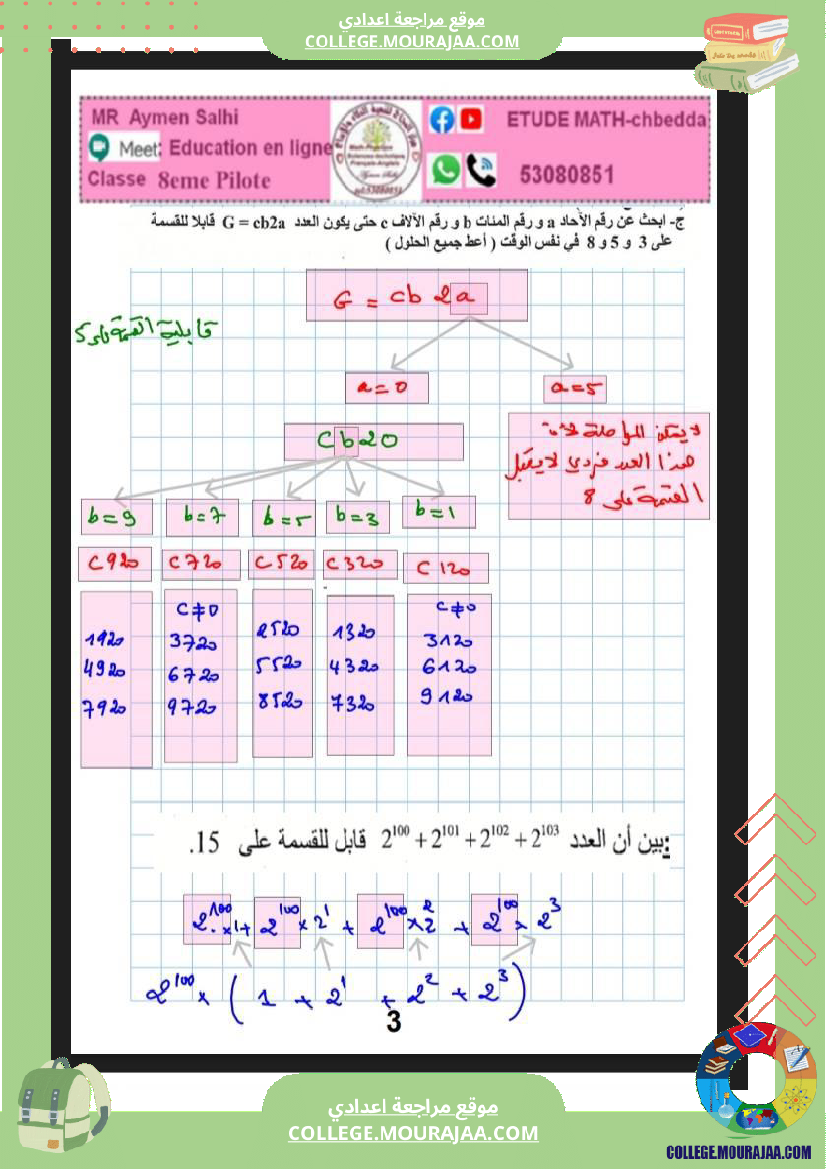 موقع مراجعة اعدادي
COLLEGE.MOURAJAA.COM
MR Aymen Salhi
Meet: Education en ligne
Classe 8eme Pilote
ETUDE MATH-chbedda
53080851
ج- ابحث عن رقم الأحاد a و رقم المئات b و رقم الآلاف c حتى يكون العدد G = cb2a قابلا للقسمة
على 3 و 5 و 8 في نفس الوقت ( أعط جميع الحلول )
G = cb 2a
قابلية القسمة على 5
a=0 a=5
Cb20
لا يمكن المواصلة لأن
هذا العدد فردي لا يقبل
القسمة على 8
b=9 b=7 b=5 b=3 b=1
C920 C720 C520 C320 C120
C≠0 C≠0
1920 3720 2520 1320 3120
4920 6720 5520 4320 6120
7920 9720 8520 7320 9120
بين أن العدد 2¹⁰⁰ + 2¹⁰¹ + 2¹⁰² + 2¹⁰³ قابل للقسمة على 15.
2¹⁰⁰×1 + 2¹⁰⁰×2¹ + 2¹⁰⁰×2² + 2¹⁰⁰×2³
2¹⁰⁰×(1 + 2¹ + 2² + 2³)
3
موقع مراجعة اعدادي
COLLEGE.MOURAJAA.COM
COLLEGE.MOURAJAA.COM